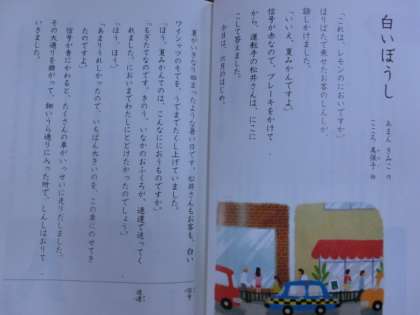 白いぼうし
あまん きみこ 作
「これは、レモンのにおいですか。」
ほりばたで乗せたお客のしんしが、
話しかけました。
「いいえ、夏みかんですよ。」
信号が赤なので、ブレーキをかけて
から、運転手の松井さんは、にこに
こして答えました。
今日は、六月のはじめ。
夏がいきなり始まったような暑い日です。松井さんもお客も、白い
ワイシャツのそでを、うでまでたくし上げていました。
「ほう、夏みかんてのは、こんなににおうものですか。」
「もぎたてなのです。きのう、いなかのおふくろが、速達で送ってく
れました。においまでわたしにとどけたかったのでしょう。」
「ほう、ほう。」
「あまりうれしかったので、いちばん大きいのを、この車にのせてき
たのですよ。」
信号が青にかわると、たくさんの車がいっせいに走りだしました。
その大通りを曲がって、細いうら通りに入った所で、しんしはおりて
いきました。
信号
速達